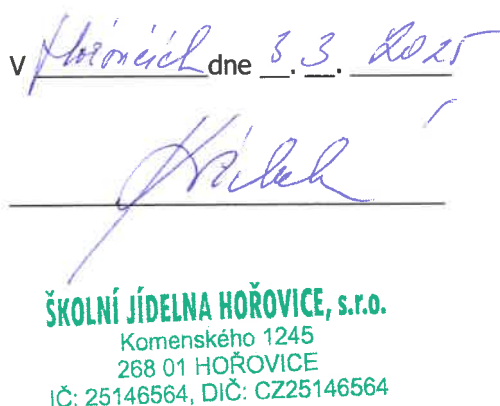 V Hořovicích dne 3. 3. 2025
ŠKOLNÍ JÍDELNA HOŘOVICE, s.r.o.
Komenského 1245
268 01 HOŘOVICE
IČ: 25146564, DIČ: CZ25146564